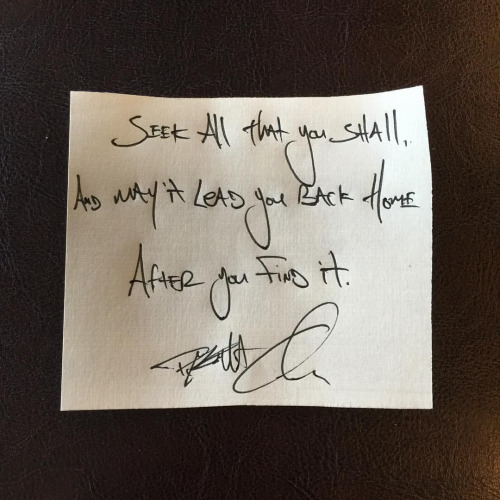 SEEK All that you SHALL,
AND MAY it LEAD you BACK HOME
AFtER you FIND it.